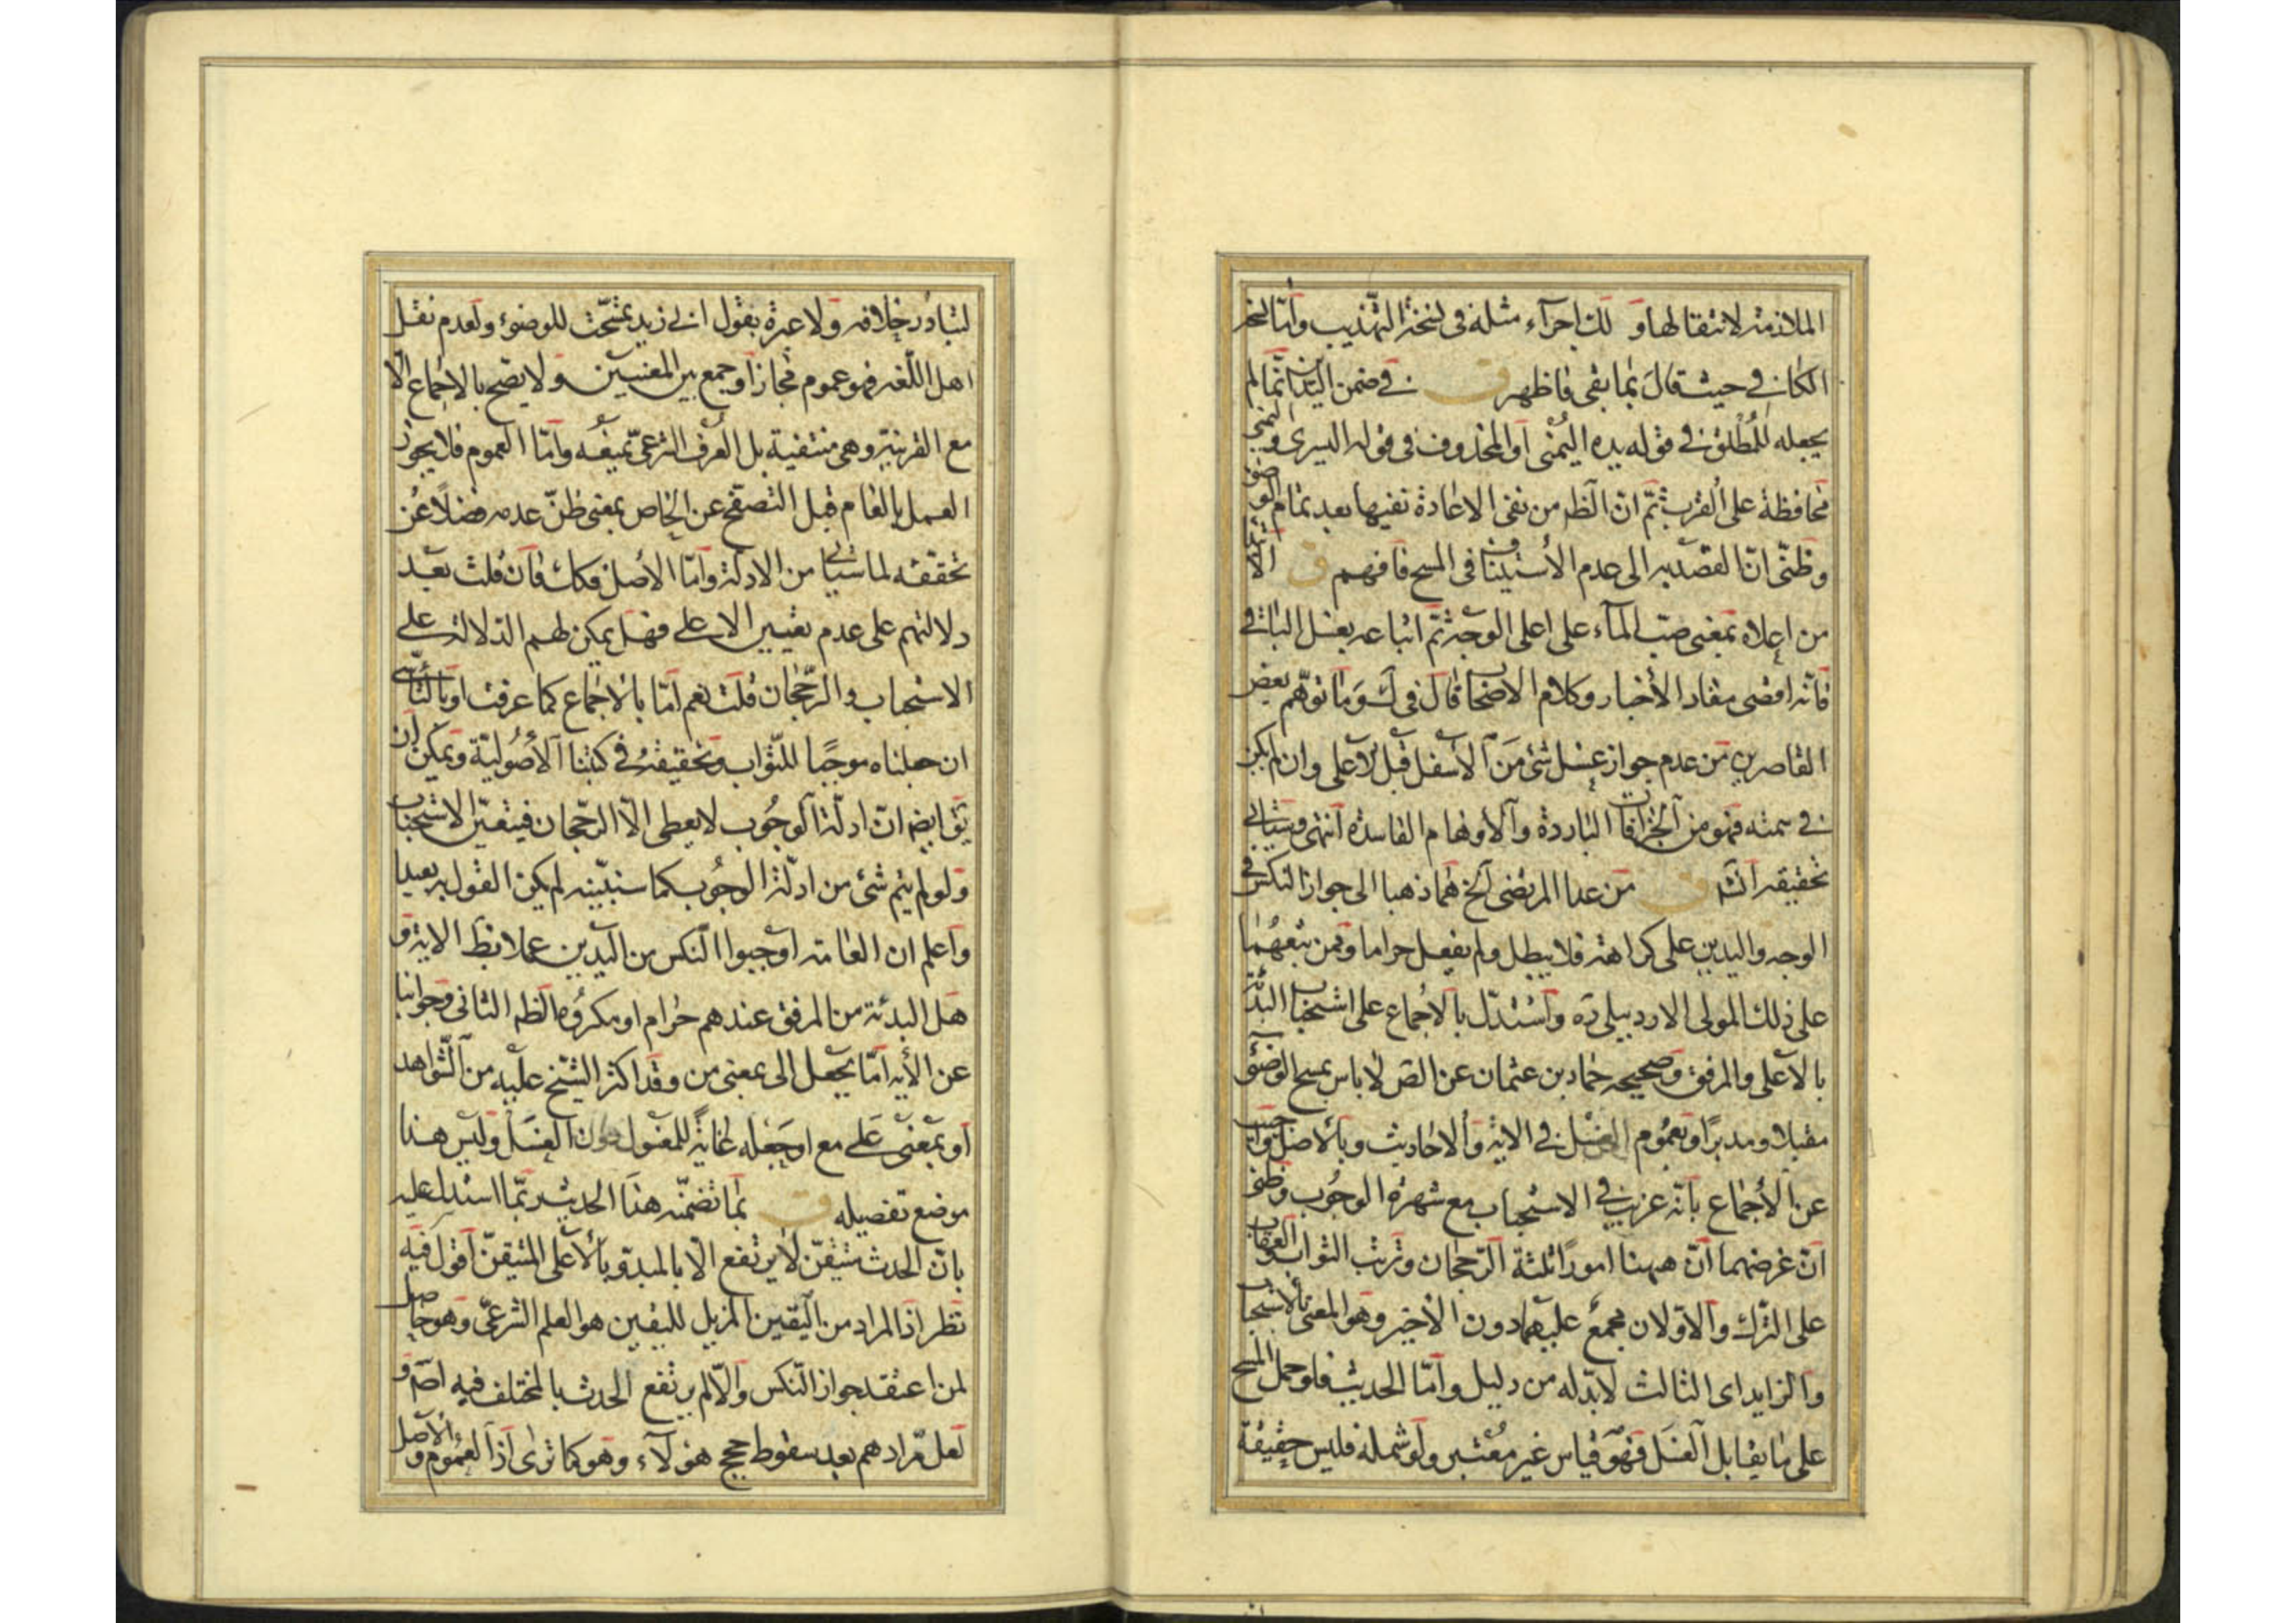 الملازمة لانتقالها و لك اجراء مثله في نسخة التهذيب وامّا نسخة
الكافي حيث قال بما بقي فاظهر ق في ضمن اليدين انّما لم
يجعله المطلق في قوله يده اليمنى أو المحذوف في قوله اليسرى واليمنى
محافظة على القرب ثمّ انّ الظ من نفي الاعادة نفيها بعد تمام الوضوء
وظنّي انّ القصد به الى عدم الأستيناف في المسح فافهم ق الابتداء
من اعلاه بمعنى صبّ المآء على اعلى الوجه ثمّ اتباعه بغسل الباقي
فانّه اقضى مفاد الأخبار وكلام الاصحاب قال في ك وما توهّم بعض
القاصرين من عدم جواز غسل شئ من الأسفل قبل الاعلى وان لم يكن
في سمته فهو من الخرافات الباردة والأوهام الفاسدة انتهى وسياتي
تحقيقه انش ق من عدا المرتضى الخ هما ذهبا الى جواز النكس في
الوجه واليدين على كراهة فلا يبطل ولم يفعل حراما وممن تبعهما
على ذلك المولى الاردبيلي ره واستدل بالاجماع على استحباب البدئة
بالاعلى والمرفق وصحيحه حماد بن عثمان عن الص لا باس بمسح الوضوء
مقبلا ومدبرا وبعموم الغسل في الاية والاحاديث وبالاصل واجيب
عن الأجماع بانّه غريب في الاستحباب مع شهرة الوجوب وظني
انّ غرضهما انّ ههنا امورًا ثلثة الرّجحان وترتب الثواب والعقاب
على الترك والاوّلان مجمع عليهما دون الأخير وهو المعنى بالاستحباب
والزايد اى الثالث لابدّ له من دليل وامّا الحديث فلو حمل المسح
على ما يقابل الغسل فهو قياس غير معتبر ولو شمله فليس حقيقة
لتبادر خلافه ولا عبرة بقول ابي زيد تمسّحت للوضوء ولعدم نقل
اهل اللّغة فهو عموم مجاز أو جمع بين المعنيين ولا يصح بالاجماع الّا
مع القرينة وهي منتفية بل العرف الشرعيّ يميفه وامّا العموم فلا يجوز
العمل بالعام قبل التصفّح عن الخاص بمعنى ظنّ عدمه فضلًا عن
تحققه لما سياتي من الادلّة وامّا الأصل فكك فان قلت بعد
دلالتهم على عدم تعيين الاعلى فهل يمكن لهم الدلالة على
الاستحباب والرّجحان قلت نعم امّا بالاجماع كما عرفت او بالتأسّي
ان جعلناه موجبًا للثواب وتحقيقه في كتبنا الأصوليّة ويمكن ان
يق ايضا انّ ادلّة الوجوب لا يعطى الّا الرّجحان فيتعيّن الاستحباب
ولو لم يتم شئ من ادلّة الوجوب كما سنبيّنه لم يكن القول به بعيدا
واعلم ان العامة أوجبوا النّكس من اليدين عملا بظ الاية و
هل البدئة من المرفق عندهم حرام او مكروه الظ الثاني وجوابنا
عن الأية امّا بجعل الى بمعنى من وقد اكثر الشيخ عليه من الشواهد
أو بمعنى على مع او جعله غاية للمغسول دون الغسل وليس هذا
موضع تفصيله ق بما تضمّنه هذا الحديث ربّما استدل عليه
بانّ الحدث متيقّن لا يرتفع الّا بالمبدو بالأعلى المتيقن أقول فيه
نظر اذ المراد من اليقين المزيل لليقين هو العلم الشرعيّ وهو حاصل
لمن اعتقد جواز النّكس والّا لم يرتفع الحدث بالمختلف فيه اصم و
لعلّ مرادهم بعد سقوط حجج هؤلآء وهو كما ترى اذ العموم والأصل